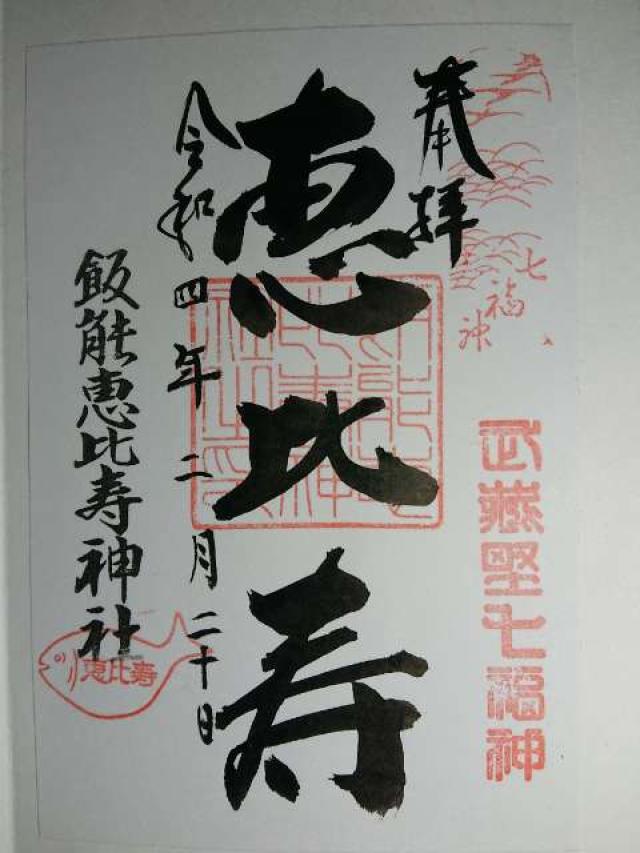 奉拝
七福神
武蔵野七福神
恵比寿
令和四年二月二十日
飯能恵比寿神社
恵比寿